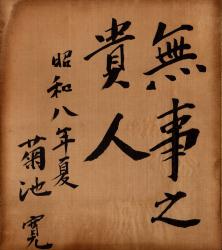 無事之
貴人
昭和八年夏
菊池寛